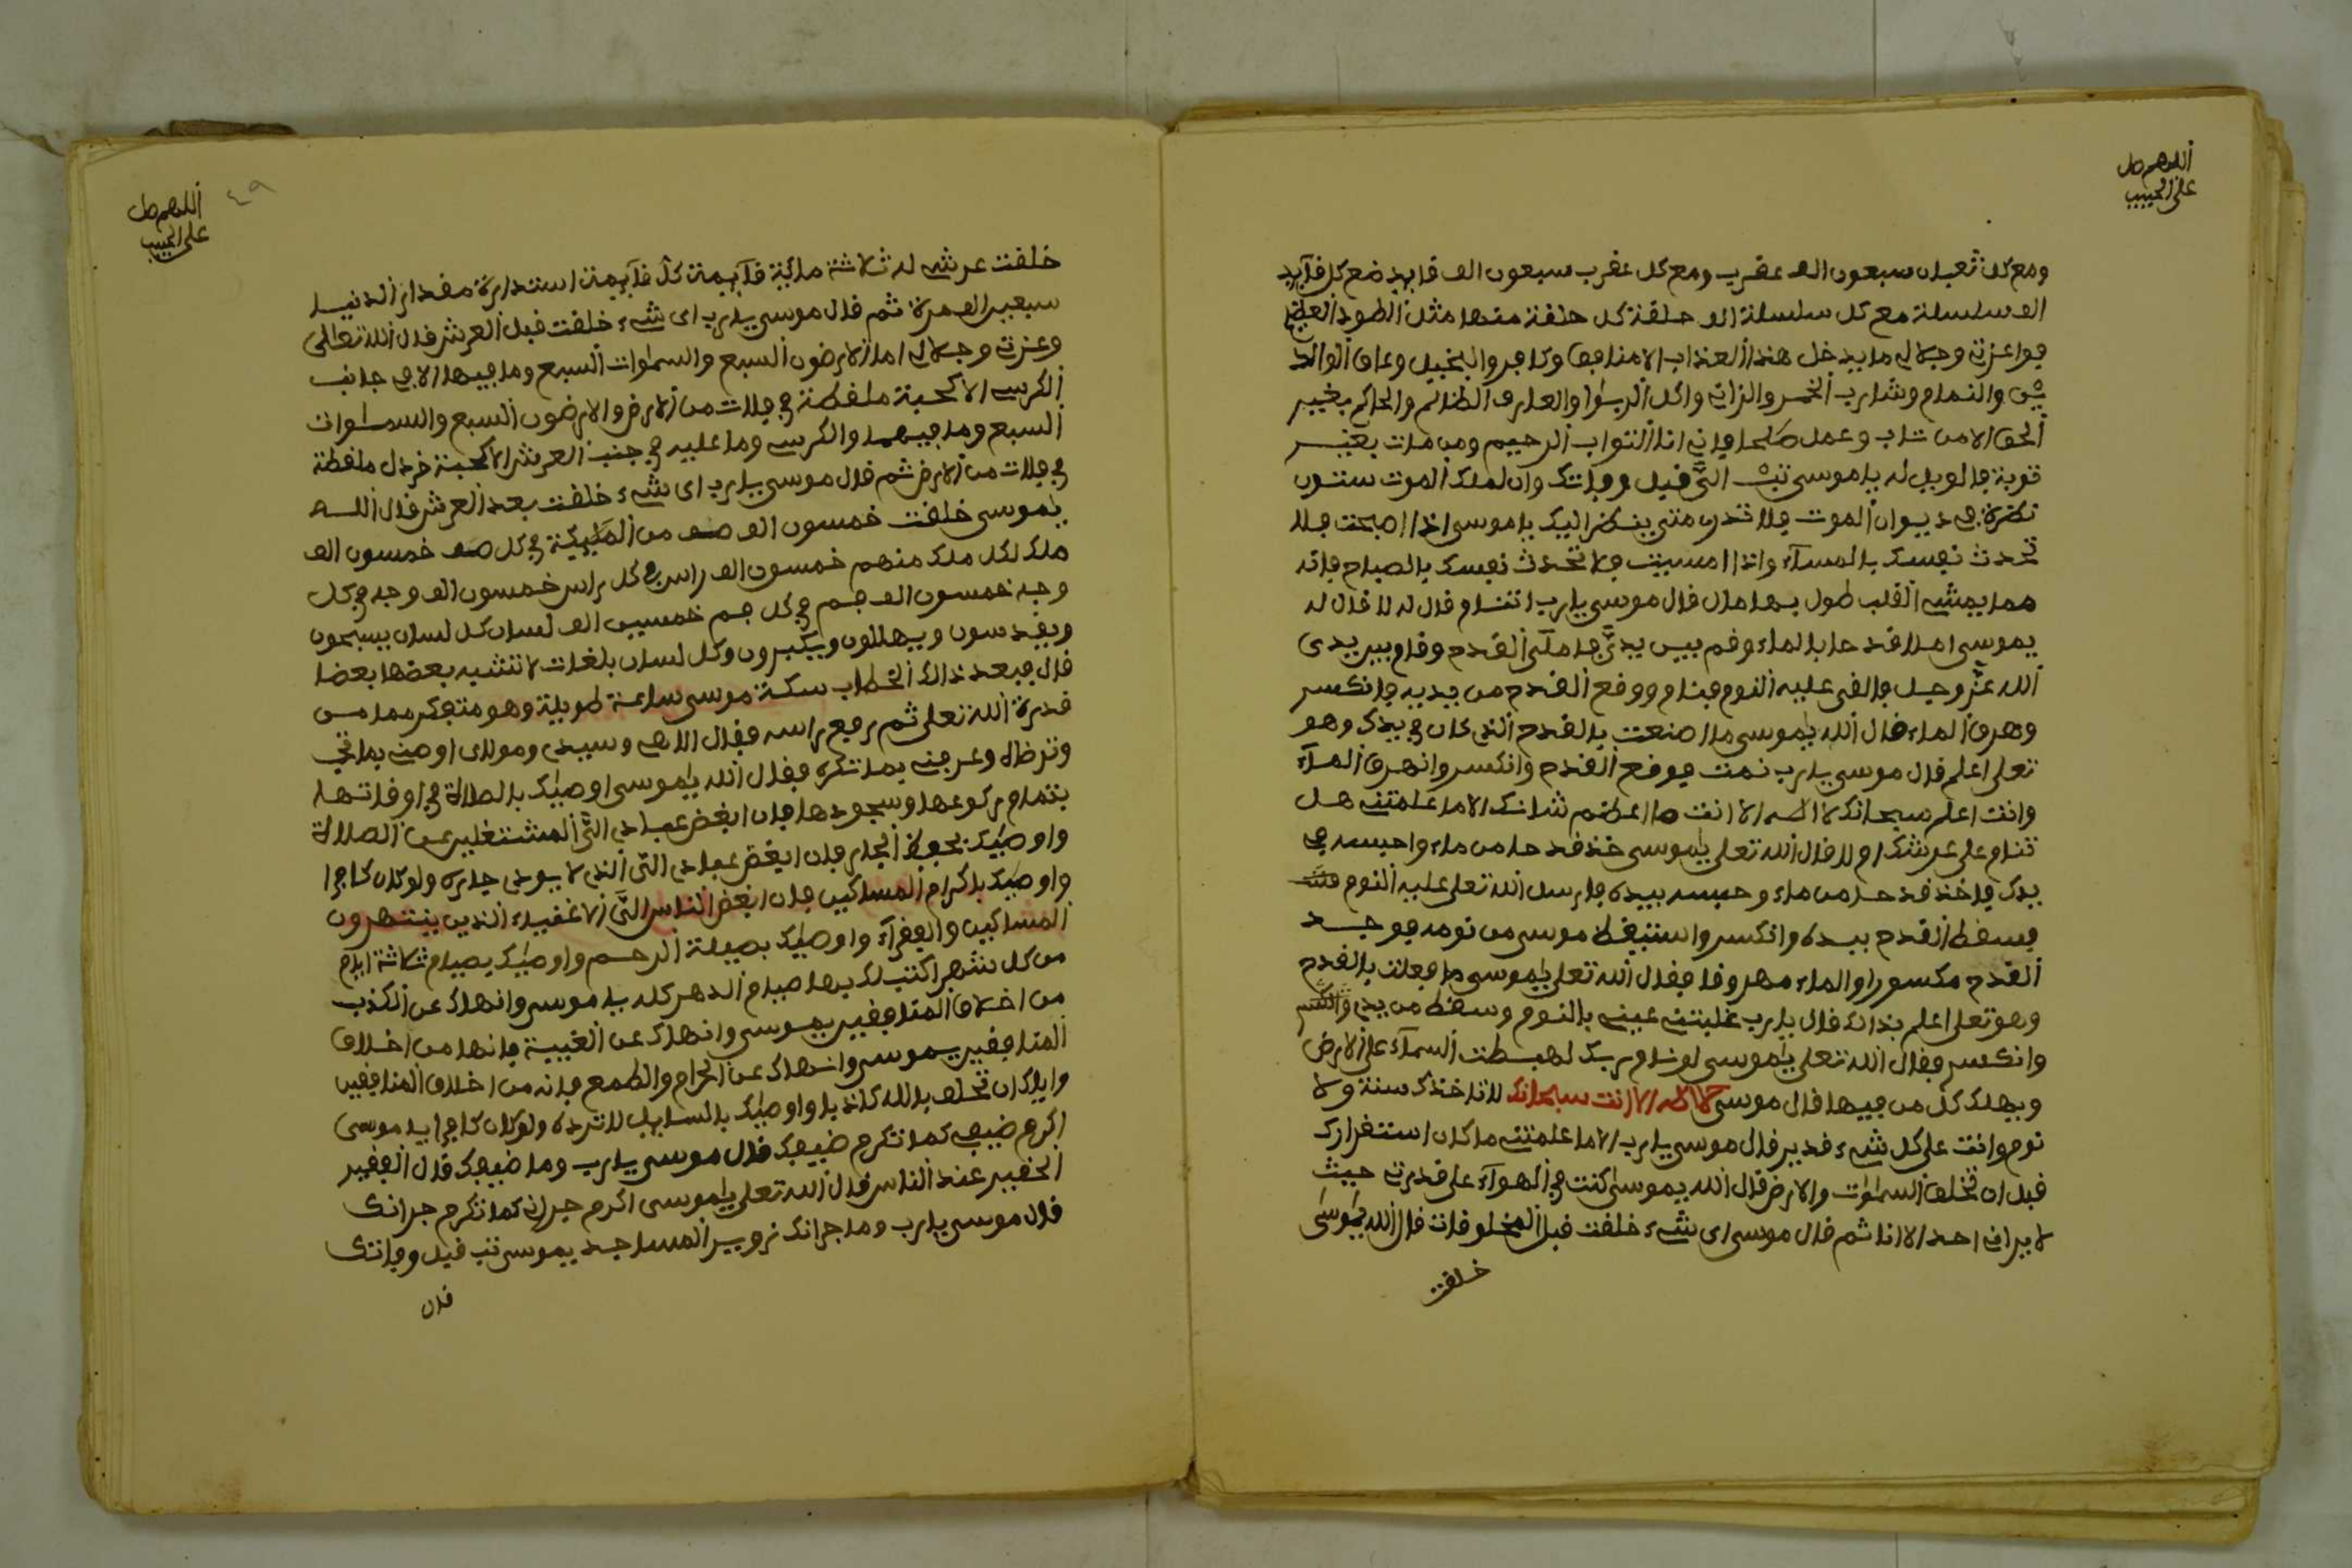 اللهم صل
على الحبيب
ومع كل ثعبان سبعون الف عقرب ومع كل عقرب سبعون الف قايد مع كل قآيد
الف سلسلة مع كل سلسلة الف حلقة كل حلقة منها مثل الطود العظيم
فوا عزتي وجلالي ما يدخل هذا العذاب الا منافق وكافر والبخيل وعاق الوالد
ين والنمام وشارب الخمر والزاني واكل الربوا والعارف الظالم والحاكم بغير
الحق الا من تاب وعمل صلحا فاني انا التواب الرحيم ومن مات بغير
توبة فالويل له يا موسى تب الي قبل وفاتك وان لملك الموت ستون
نظرة في ديوان الموت فلا تدري متى ينظر اليك يا موسى اذا اصبحت فلا
تحدث نفسك بالمسآء واذا امسيت فلا تحدث نفسك بالصباح فانه
مما يمشي القلب طول بها مال قال موسى يا رب اتنام قال له لا قال له
يموسى املا قدحا بالماء وقم بين يدي فاملى القدح وقام بين يدي
الله عز وجل فالقى عليه النوم فنام ووقع القدح من يديه فانكسر
وهرق الماء قال الله يموسى ما صنعت بالقدح الذي كان في يدك وهو
تعلى اعلم قال موسى يا رب نمت فوقع القدح وانكسر وانهرق المآء
وانت اعلم سبحانك لا اله الا انت ما اعظم شانك الا ما علمتني هل
تنام على عرشك ام لا قال الله تعلى يموسى خذ قدحا من ماء واحبسه في
يدك فاخذ قدحا من ماء وحبسه بيده فارسل الله تعلى عليه النوم
فسقط القدح بيده وانكسر واستيقظ موسى من نومه فوجد
القدح مكسورا والماء مهروقا فقال الله تعلى يموسى ما فعلت بالقدح
وهو تعلى اعلم بذالك قال يا رب غلبتني عيني بالنوم وسقط من يدي
وانكسر فقال الله تعلى يموسى لو نام ربك لهبطت السمآء على الارض
ويهلك كل من فيها قال موسى لا اله الا انت سبحانك لا تاخذك سنة ولا
نوم وانت على كل شيء قدير قال موسى يا رب الا ما علمتني ما كان استقرارك
قبل ان تخلق السموات والارض قال الله يموسى كنت في الهوآء على قدرتي حيث
لا يراني احد الا انا ثم قال موسى اي شيء خلقت قبل المخلوقات قال الله يموسى
خلقت
٤٩
اللهم صل
على الحبيب
خلقت عرشي له ثلاثة ماية قآيمة كل قآيمة استدارة مقدار الدنيا
سبعين الف مرة ثم قال موسى يا رب اي شيء خلقت قبل العرش قال الله تعالى
وعزتي وجلالي اما الارضون السبع والسموات السبع وما فيها الا في جانب
الكرسي الا كحبة ملقطة في فلات من الارض والارضون السبع والسموات
السبع وما فيهما والكرسي وما عليه في جنب العرش الا كحبة خردل ملقطة
في فلات من الارض ثم قال موسى يا رب اي شيء خلقت بعد العرش قال الله
يموسى خلقت خمسون الف صف من الملئكة في كل صف خمسون الف
ملك لكل ملك منهم خمسون الف راس في كل راس خمسون الف وجه في كل
وجه خمسون الف فم في كل فم خمسين الف لسان كل لسان يسبحون
ويقدسون ويهللون ويكبرون وكل لسان بلغات لا تشبه بعضها بعضا
قال فبعد ذالك الخطاب سكت موسى ساعة طويلة وهو متفكر مما من
قدرة الله تعلى ثم رفع راسه فقال الاهي وسيدي ومولاي اوصني بما تحب
وترضاه وعرفني بما تكره فقال الله يموسى اوصيك بالصلاة في اوقاتها
بتمام ركوعها وسجودها فان ابغض عبادي الي المشتغلين عن الصلاة
واوصيك بحفظ الجار فان ابغض عبادي الي الذي لا يودي جاره ولو كان كافرا
واوصيك باكرام المساكين فان ابغض الناس الي الاغنياء الذين ينتهرون
المساكين والفقرآء واوصيك بصيلة الرحم واوصيك بصيام ثلاثة ايام
من كل شهر اكتب لك بها صيام الدهر كله يا موسى وانهاك عن الكذب
من اخلاق المنافقين يموسى وانهاك عن الغيبة فانها من اخلاق
المنافقين يموسى وانهاك عن الحرام والطمع فانه من اخلاق المنافقين
واياك ان تحلف بالله كاذبا واوصيك بالسايل لا ترده ولو كان كافرا يا موسى
اكرم ضيفي كما تكرم ضيفك قال موسى يا رب وما ضيفك قال الفقير
الحقير عند الناس قال الله تعلى يموسى اكرم جيراني كما تكرم جرانك
قال موسى يا رب وما جرانك زويير المساجد يموسى تب قبل وفاتك
فان